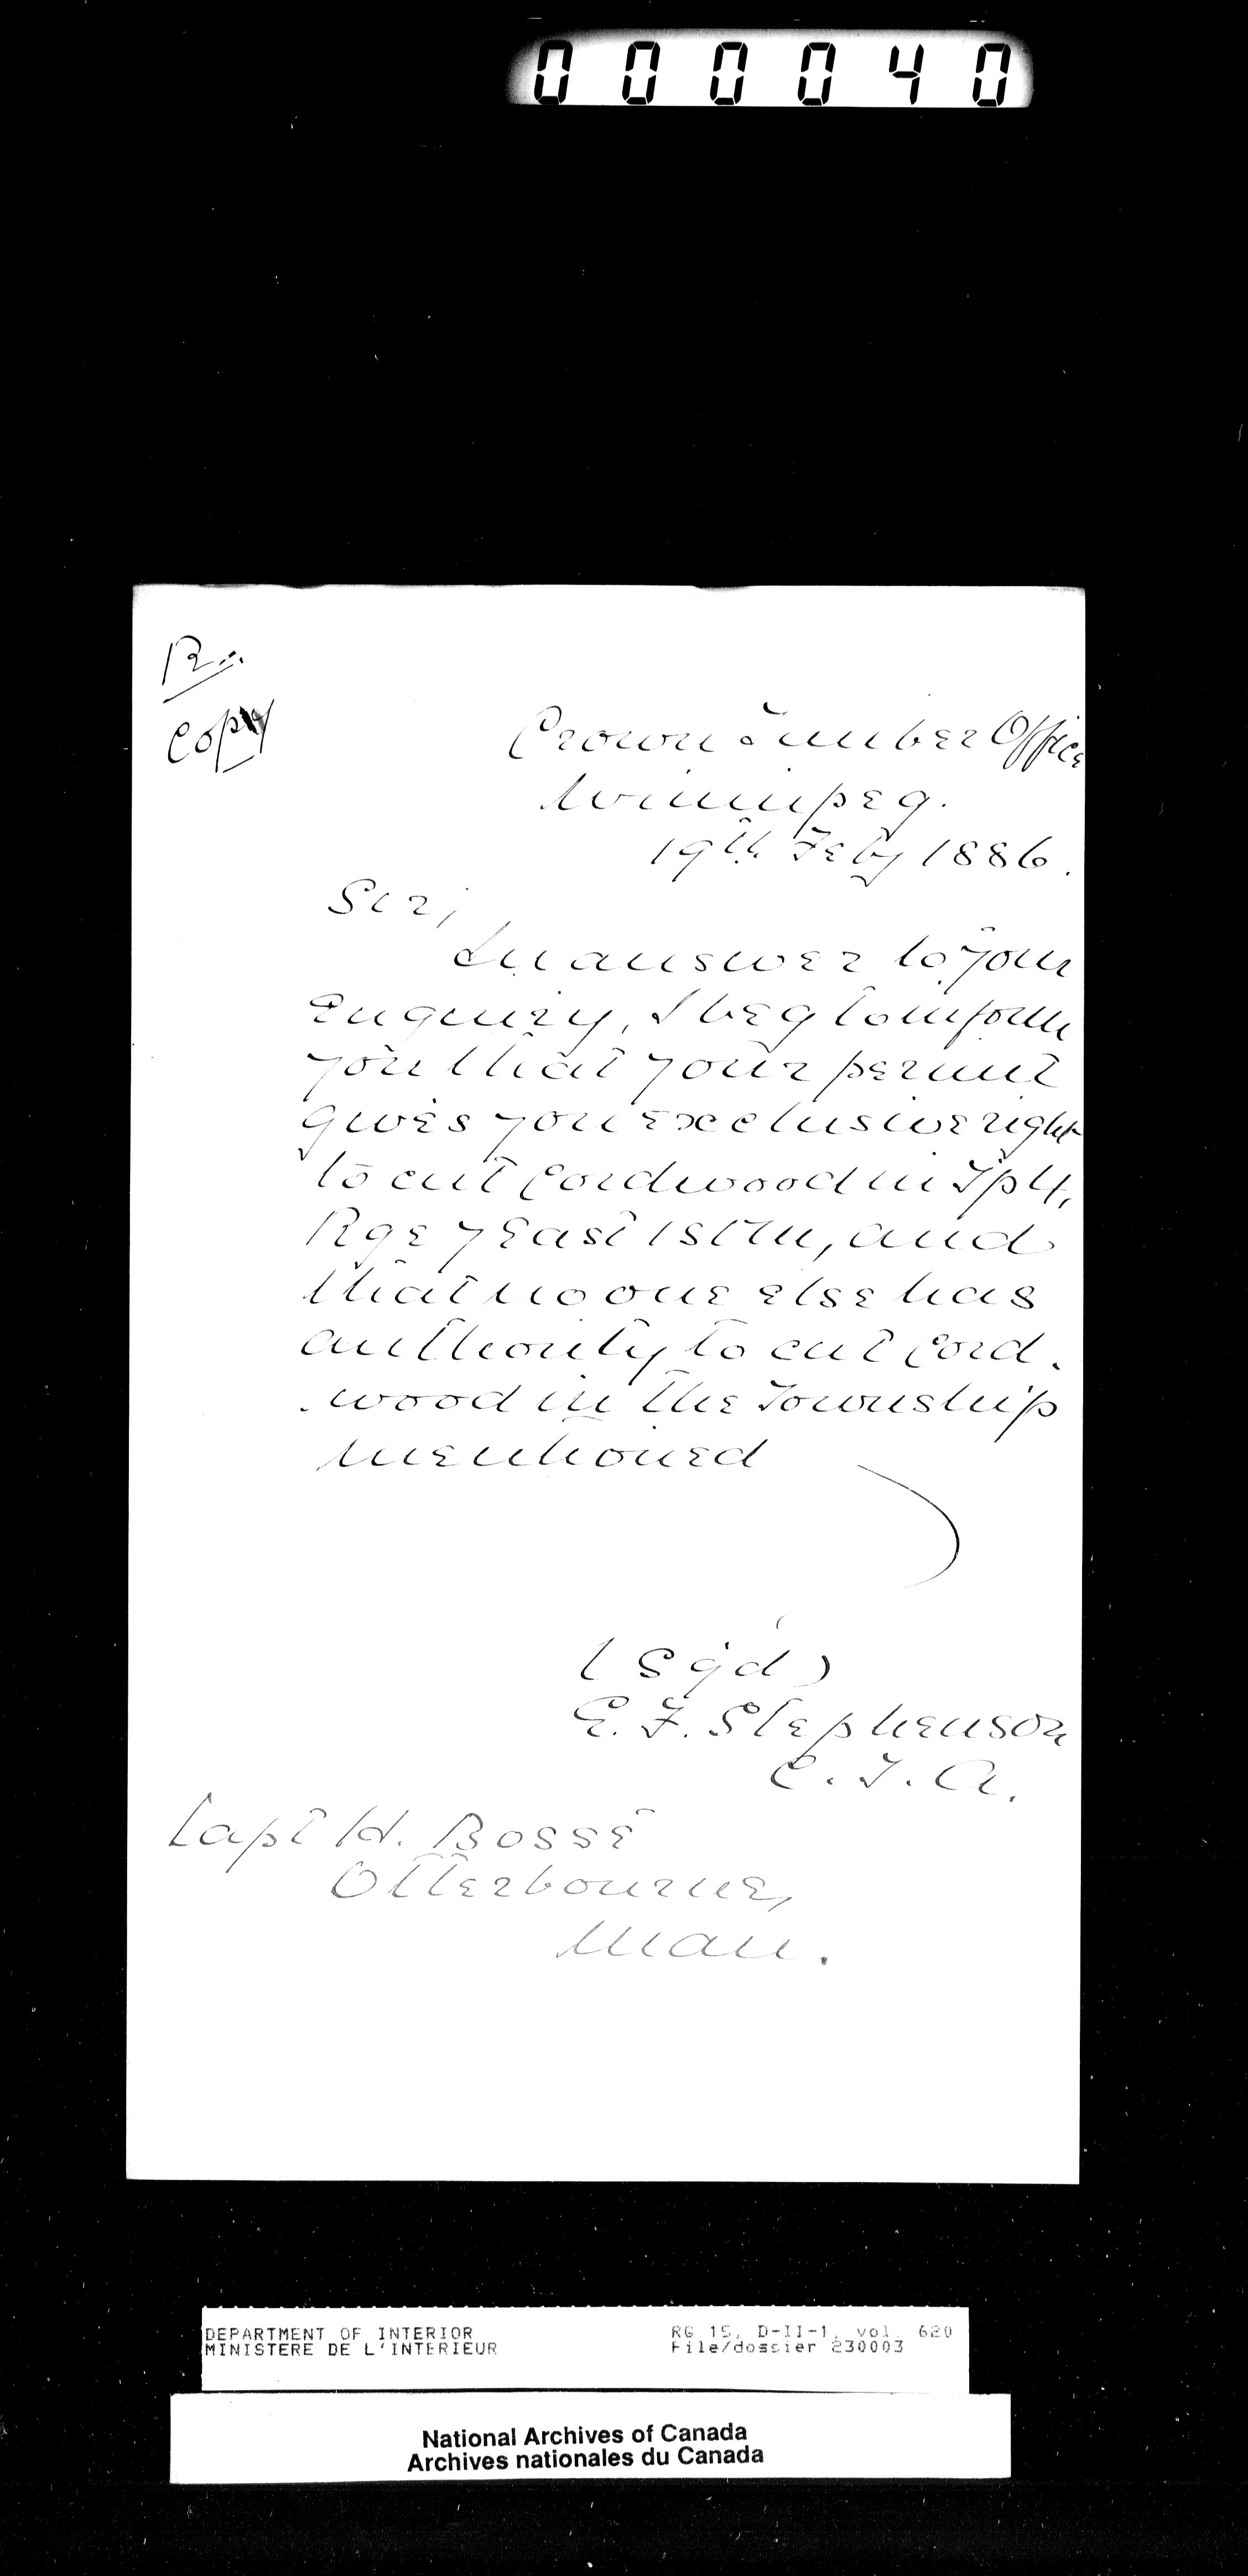 000040
R.
Copy
Crown Timber Office
Winnipeg.
19th Feby 1886.
Sir,
In answer to your
Enquiry, I beg to inform
you that your permit
gives you exclusive right
to cut Cordwood in Tp 4,
Rge 7 East 1st M, and
that no one else has
authority to cut Cord-
-wood in the Township
mentioned
(Sgd)
E. F. Stephenson
C. T. A.
Capt H. Bossé
Otterbourne,
Man.
DEPARTMENT OF INTERIOR RG 15, D-II-1, vol. 620
MINISTERE DE L'INTERIEUR File/dossier 230003
National Archives of Canada
Archives nationales du Canada